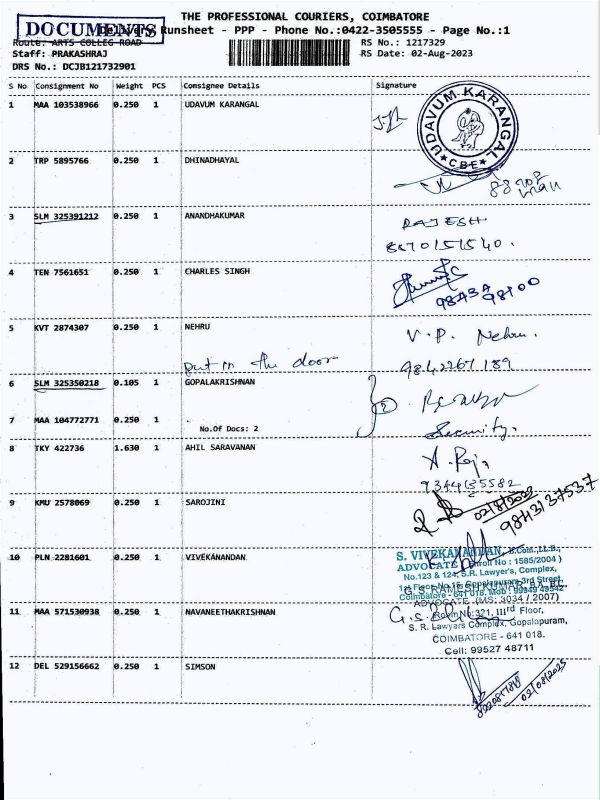 THE PROFESSIONAL COURIERS, COIMBATORE
DOCUMENTS
Delivery Runsheet - PPP - Phone No.:0422-3505555 - Page No.:1
Route: ARTS COLLEG ROAD
RS No.: 1217329
Staff: PRAKASHRAJ
RS Date: 02-Aug-2023
DRS No.: DCJB121732901
S No Consignment No Weight PCS Consignee Details Signature
1 MAA 103538966 0.250 1 UDAVUM KARANGAL
UDAVUM KARANGAL
CBE
2 TRP 5895766 0.250 1 DHINADHAYAL
3 SLM 325391212 0.250 1 ANANDHAKUMAR
RAJESH
4 TEN 7561651 0.250 1 CHARLES SINGH
98434 98100
5 KVT 2874307 0.250 1 NEHRU
V.P. Nehru.
put in the door
9842267189
6 SLM 325350218 0.105 1 GOPALAKRISHNAN
2
7 MAA 104772771 0.250 1 .
No.Of Docs: 2
Security.
8 TKY 422736 1.630 1 AHIL SARAVANAN
A. Raja
9344135582
9 KMU 2578069 0.250 1 SAROJINI
02/8/2023
9843137537
10 PLN 2281601 0.250 1 VIVEKANANDAN
S. VIVEKANANDAN, B.Com.,LL.B.,
ADVOCATE (Enroll No : 1585/2004 )
No.123 & 124, S.R. Lawyer's, Complex,
1st Floor, No.15, Gopalapuram 3rd Street,
Coimbatore - 641 018. Mob : 99949 49542
11 MAA 571530938 0.250 1 NAVANEETHAKRISHNAN
G.S. RAMESHKUMAR, BA.,BL.
ADVOCATE (MS: 3034 / 2007)
Room No:321, IIIrd Floor,
S. R. Lawyers Complex, Gopalapuram,
COIMBATORE - 641 018.
Cell: 99527 48711
12 DEL 529156662 0.250 1 SIMSON
02/08/2023